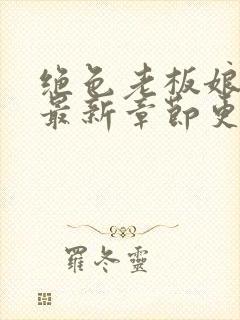 绝色老板娘
最新章节更
羅冬靈